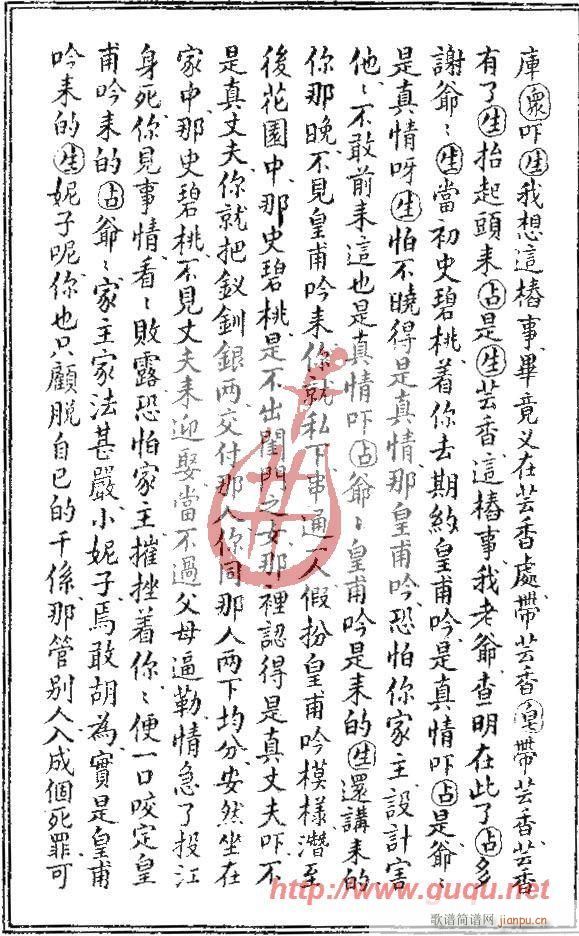 庫㊂眾吓生我想這樁事畢竟又在芸香處帶芸香皂帶芸香芸香
有了生抬起頭來占是生芸香這樁事我老爺查明在此了占多
謝爺〻生當初史碧桃着你去期約皇甫吟是真情吓占是爺〻
是真情呀生怕不曉得是真情那皇甫吟恐怕你家主設計害
他〻不敢前来這也是真情吓占爺〻皇甫吟是来的生還講来的
你那晚不見皇甫吟来你就私下串通一人假扮皇甫吟模樣潛至
後花園中那史碧桃是不出閨門之女那裡認得是真丈夫吓不
是真丈夫你就把釵釧銀兩交付那人你同那人兩下均分安然坐在
家中那史碧桃不見丈夫来迎娶當不過父母逼勒情急了投江
身死你見事情看〻敗露恐怕家主摧挫着你〻便一口咬定皇
甫吟来的占爺〻家主家法甚嚴小妮子焉敢胡為實是皇甫
吟来的生妮子呢你也只顧脫自己的干係那管別人入成個死罪可
http://www.guqu.net
歌谱简谱网
jianpu.cn